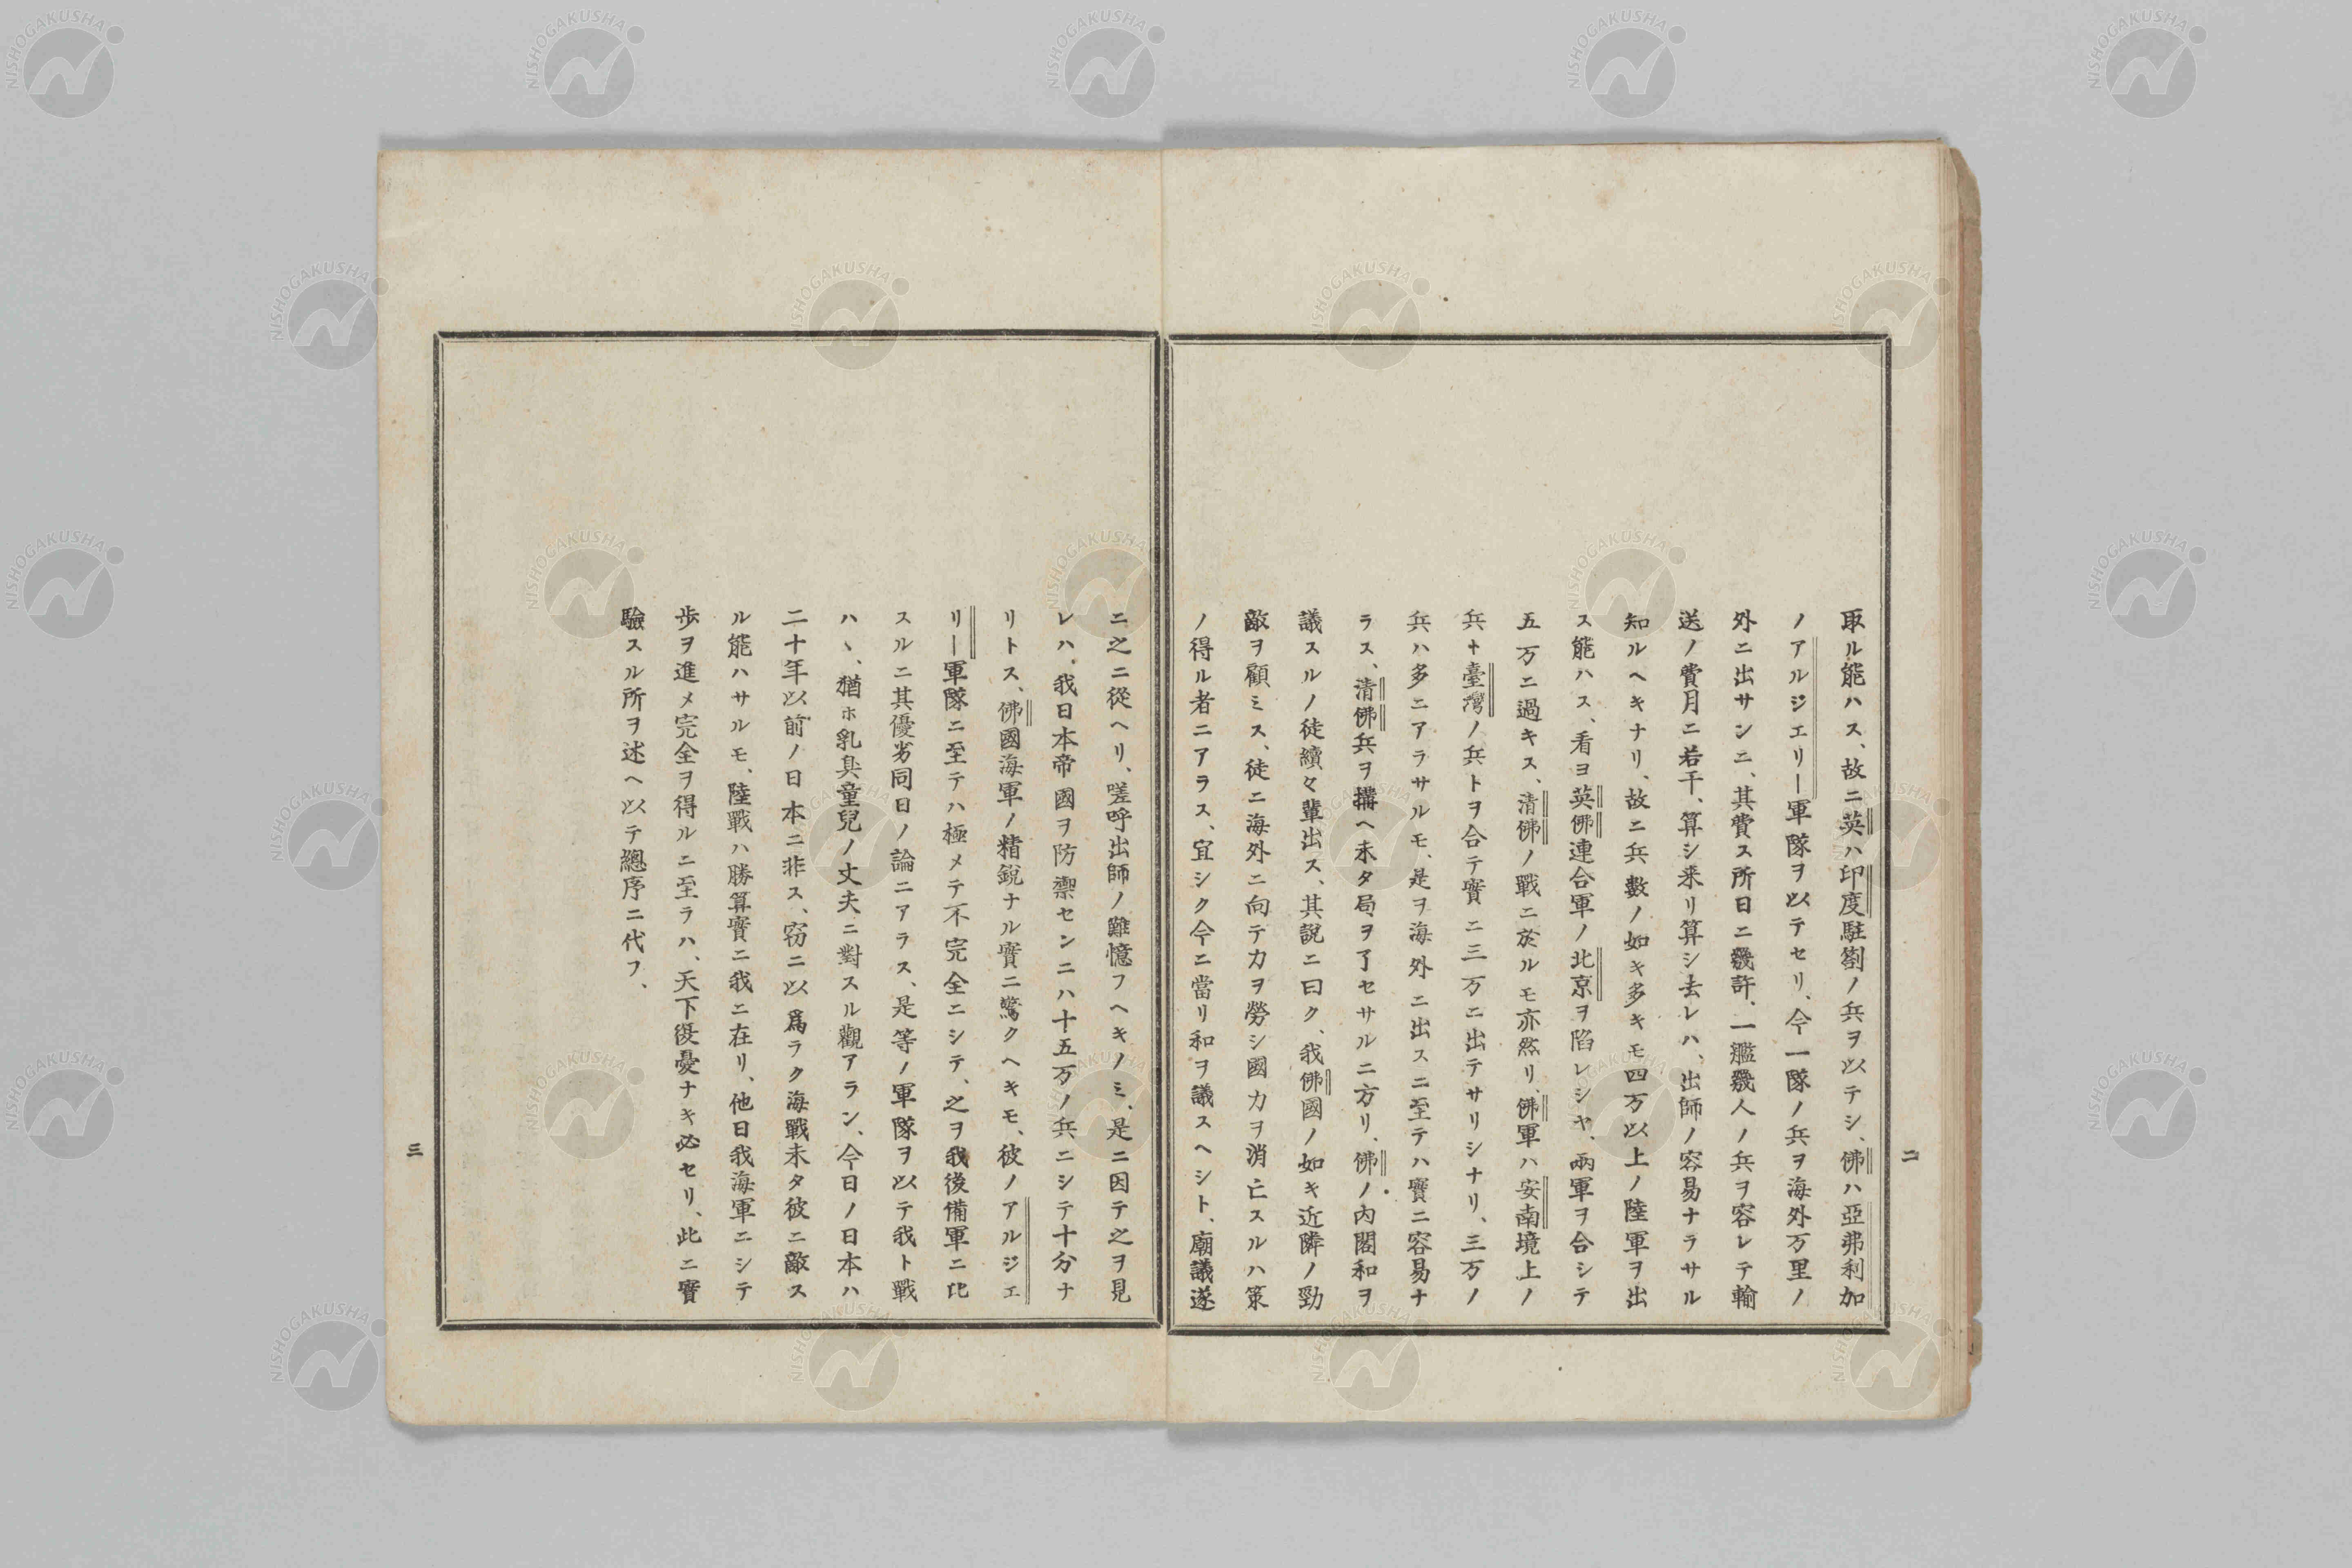 取ル能ハス、故ニ英ハ印度駐劄ノ兵ヲ以テシ、佛ハ亞弗利加
ノアルジエリー軍隊ヲ以テセリ、今一隊ノ兵ヲ海外万里ノ
外ニ出サンニ、其費ス所日ニ幾許、一艦幾人ノ兵ヲ容レテ輸
送ノ費月ニ若干、算シ来リ算シ去レハ、出師ノ容易ナラサル
知ルヘキナリ、故ニ兵數ノ如キ多キモ四万以上ノ陸軍ヲ出
ス能ハス、看ヨ英佛連合軍ノ北京ヲ陷レシヤ、兩軍ヲ合シテ
五万ニ過キス、清佛ノ戰ニ於ルモ亦然リ、佛軍ハ安南境上ノ
兵ト臺灣ノ兵トヲ合テ實ニ三万ニ出テサリシナリ、三万ノ
兵ハ多ニアラサルモ、是ヲ海外ニ出スニ至テハ實ニ容易ナ
ラス、清佛兵ヲ搆ヘ末タ局ヲ了セサルニ方リ、佛ノ内閣和ヲ
議スルノ徒續々輩出ス、其說ニ曰ク、我佛國ノ如キ近隣ノ勁
敵ヲ顧ミス、徒ニ海外ニ向テカヲ勞シ國力ヲ消亡スルハ策
ノ得ル者ニアラス、宜シク今ニ當リ和ヲ議スヘシト、廟議遂
二
ニ之ニ從ヘリ、嗟呼出師ノ難憶フヘキノミ、是ニ因テ之ヲ見
レハ、我日本帝國ヲ防禦センニハ十五万ノ兵ニシテ十分ナ
リトス、佛國海軍ノ精銳ナル實ニ驚クヘキモ、彼ノアルジエ
リー軍隊ニ至テハ極メテ不完全ニシテ、之ヲ我後備軍ニ比
スルニ其優劣同日ノ論ニアラス、是等ノ軍隊ヲ以テ我ト戰
ハヽ、猶ホ乳臭童兒ノ丈夫ニ對スル觀アラン、今日ノ日本ハ
二十年以前ノ日本ニ非ス、窃ニ以爲ラク海戰未タ彼ニ敵ス
ル能ハサルモ、陸戰ハ勝算實ニ我ニ在リ、他日我海軍ニシテ
步ヲ進メ完全ヲ得ルニ至ラハ、天下復憂ナキ必セリ、此ニ實
驗スル所ヲ述ヘ以テ總序ニ代フ、
三
NISHOGAKUSHA